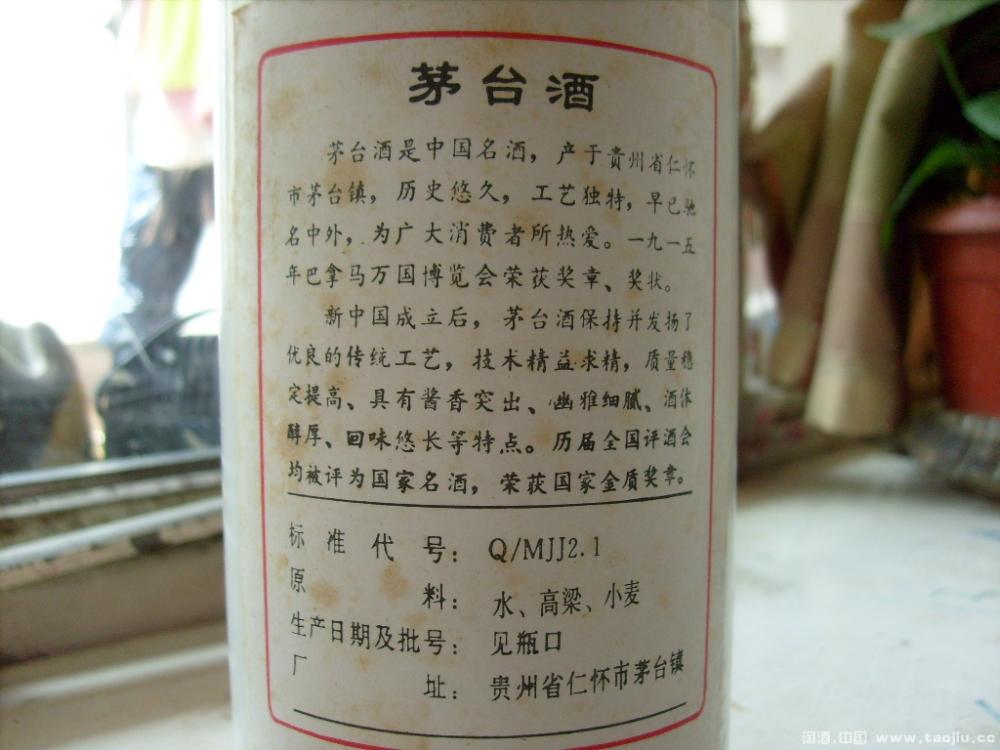 茅台酒
茅台酒是中国名酒，产于贵州省仁怀
市茅台镇，历史悠久，工艺独特，早已驰
名中外，为广大消费者所热爱。一九一五
年巴拿马万国博览会荣获奖章、奖状。
新中国成立后，茅台酒保持并发扬了
优良的传统工艺，技术精益求精，质量稳
定提高、具有酱香突出、幽雅细腻、酒体
醇厚、回味悠长等特点。历届全国评酒会
均被评为国家名酒，荣获国家金质奖章。
标准代号：Q/MJJ2.1
原料：水、高梁、小麦
生产日期及批号：见瓶口
厂址：贵州省仁怀市茅台镇
淘酒.中国 www.taojiu.cc